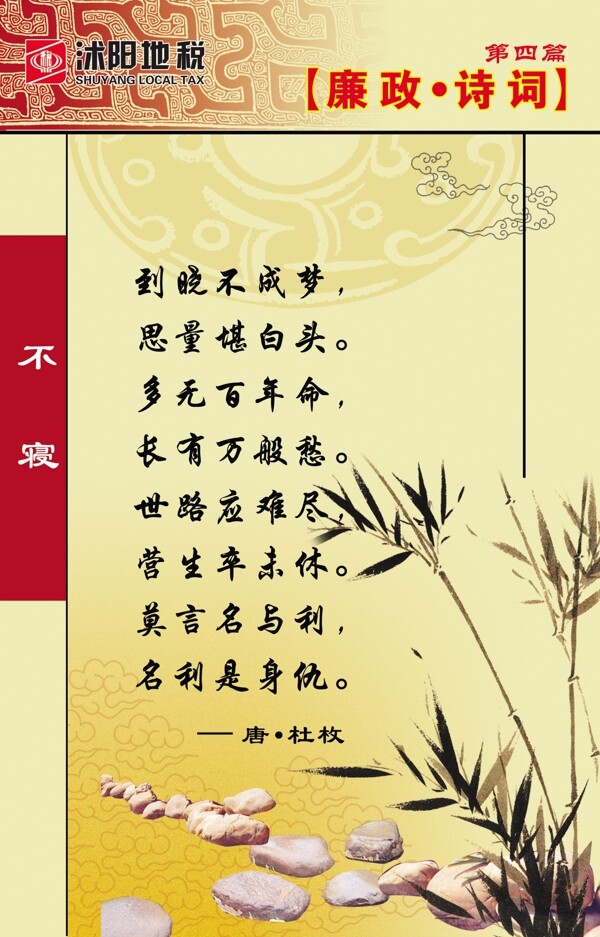 沭阳地税
SHUYANG LOCAL TAX
第四篇
【廉政·诗词】
不寝
到晓不成梦，
思量堪白头。
多无百年命，
长有万般愁。
世路应难尽，
营生卒未休。
莫言名与利，
名利是身仇。
— 唐·杜枚